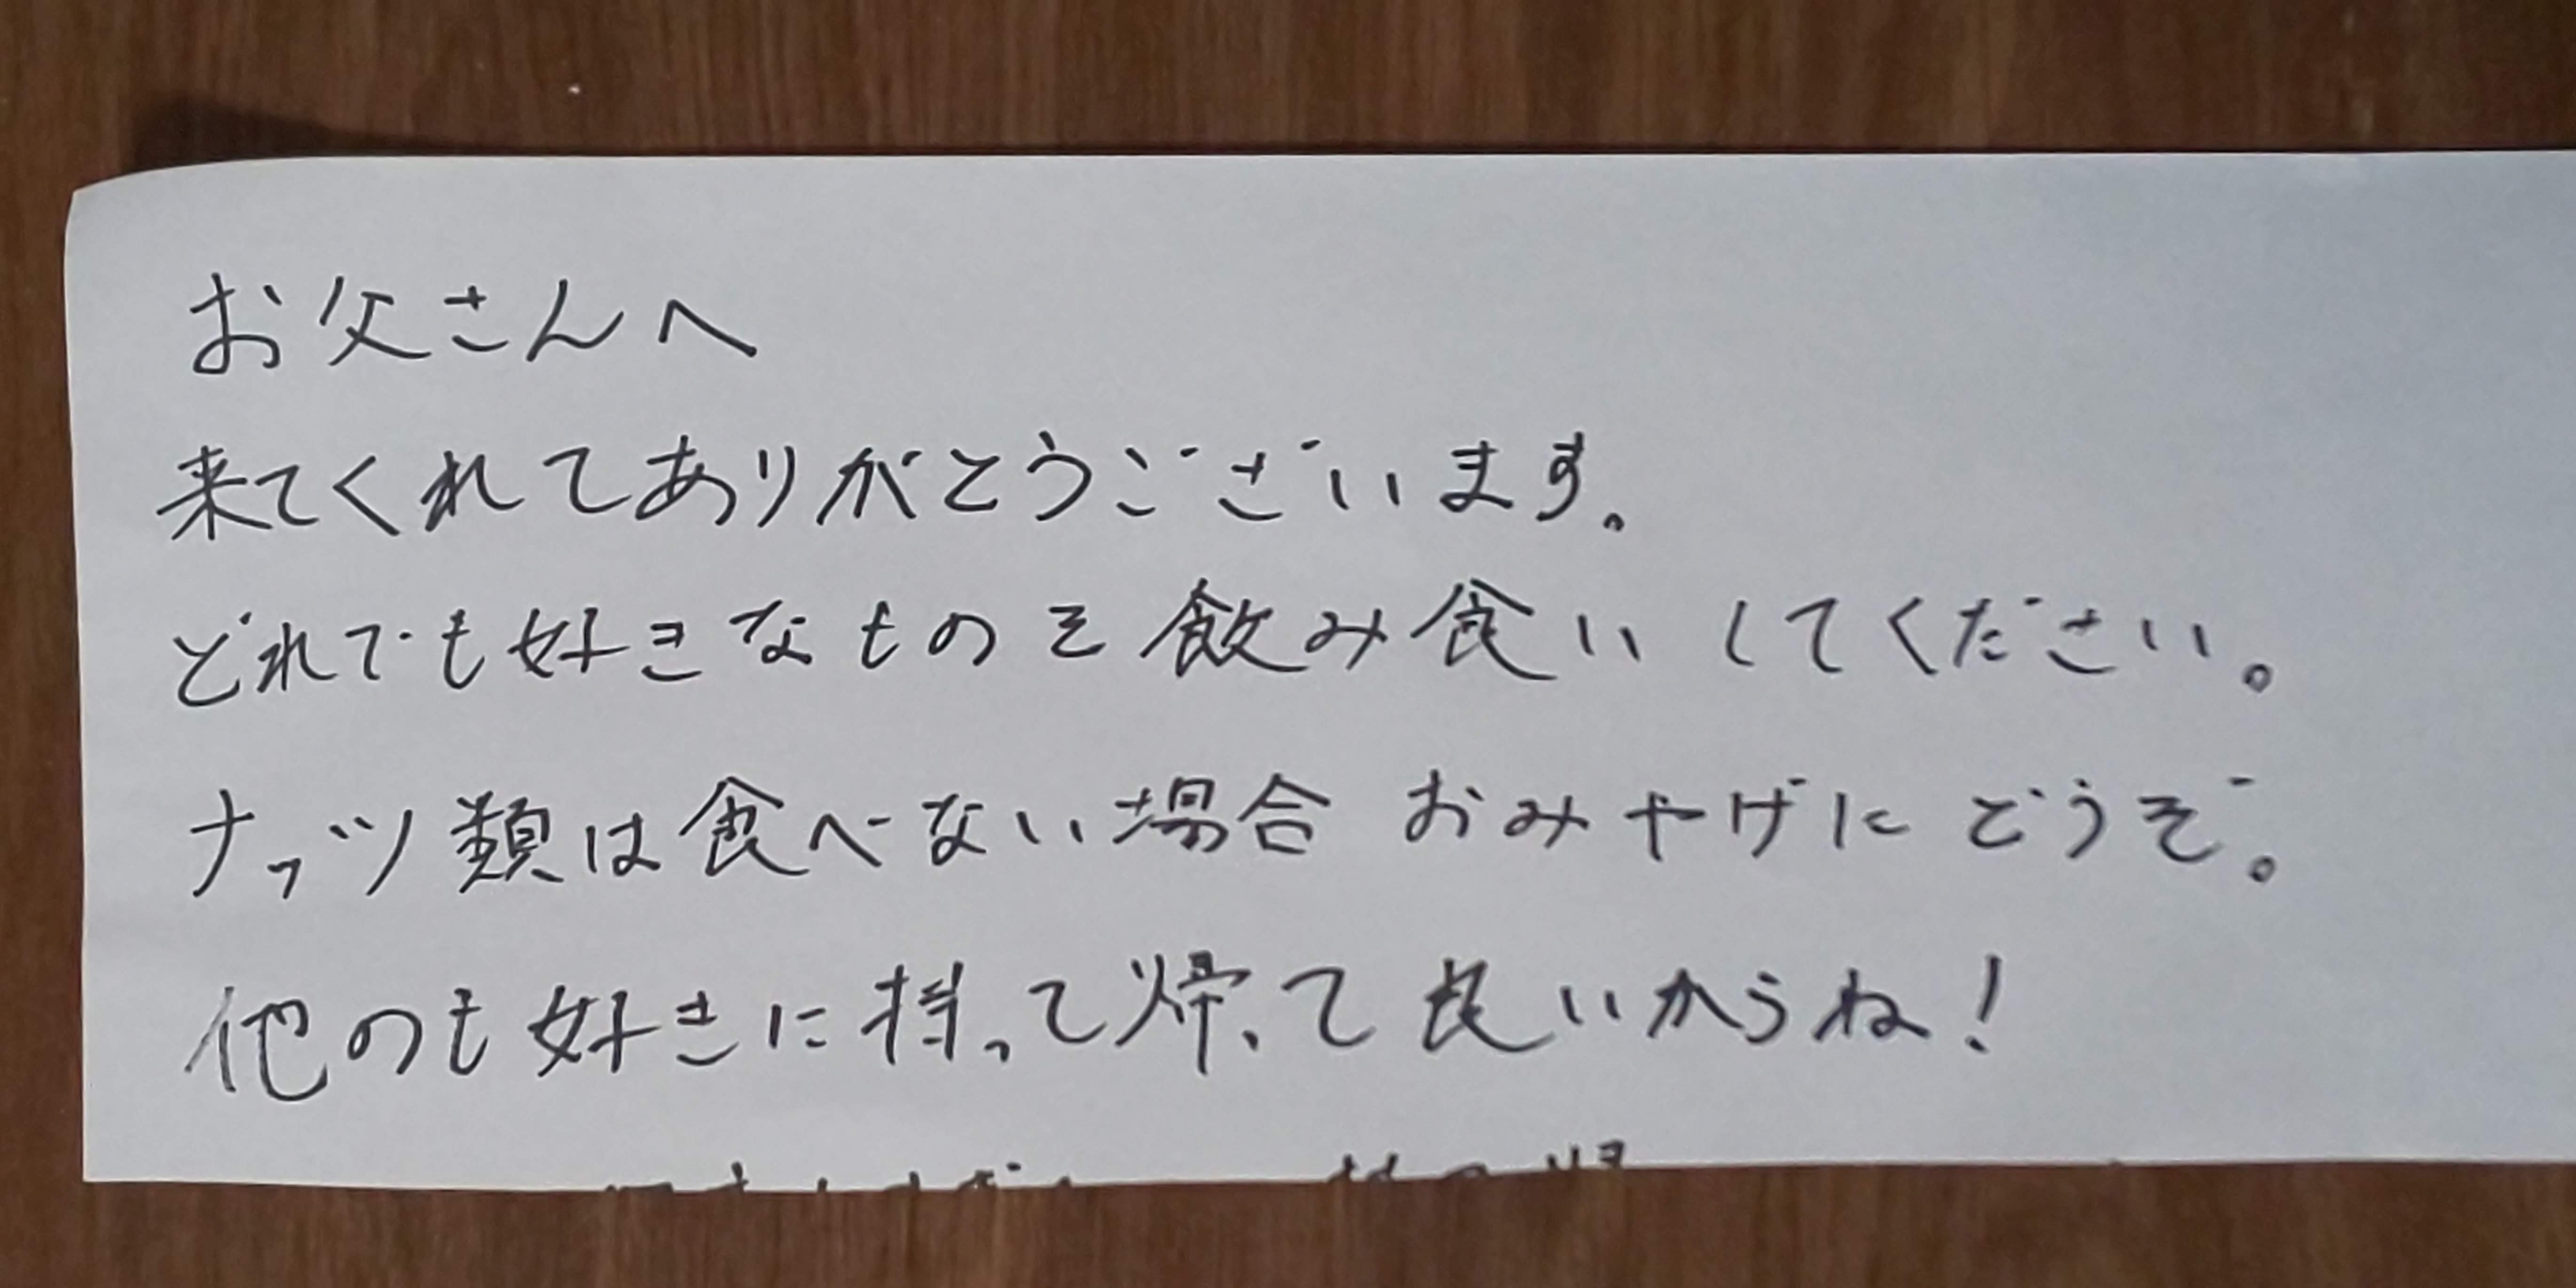 お父さんへ
来てくれてありがとうございます。
どれでも好きなものを飲み食いしてください。
ナッツ類は食べない場合 おみやげに どうぞ。
他のも好きに持って帰って良いからね!